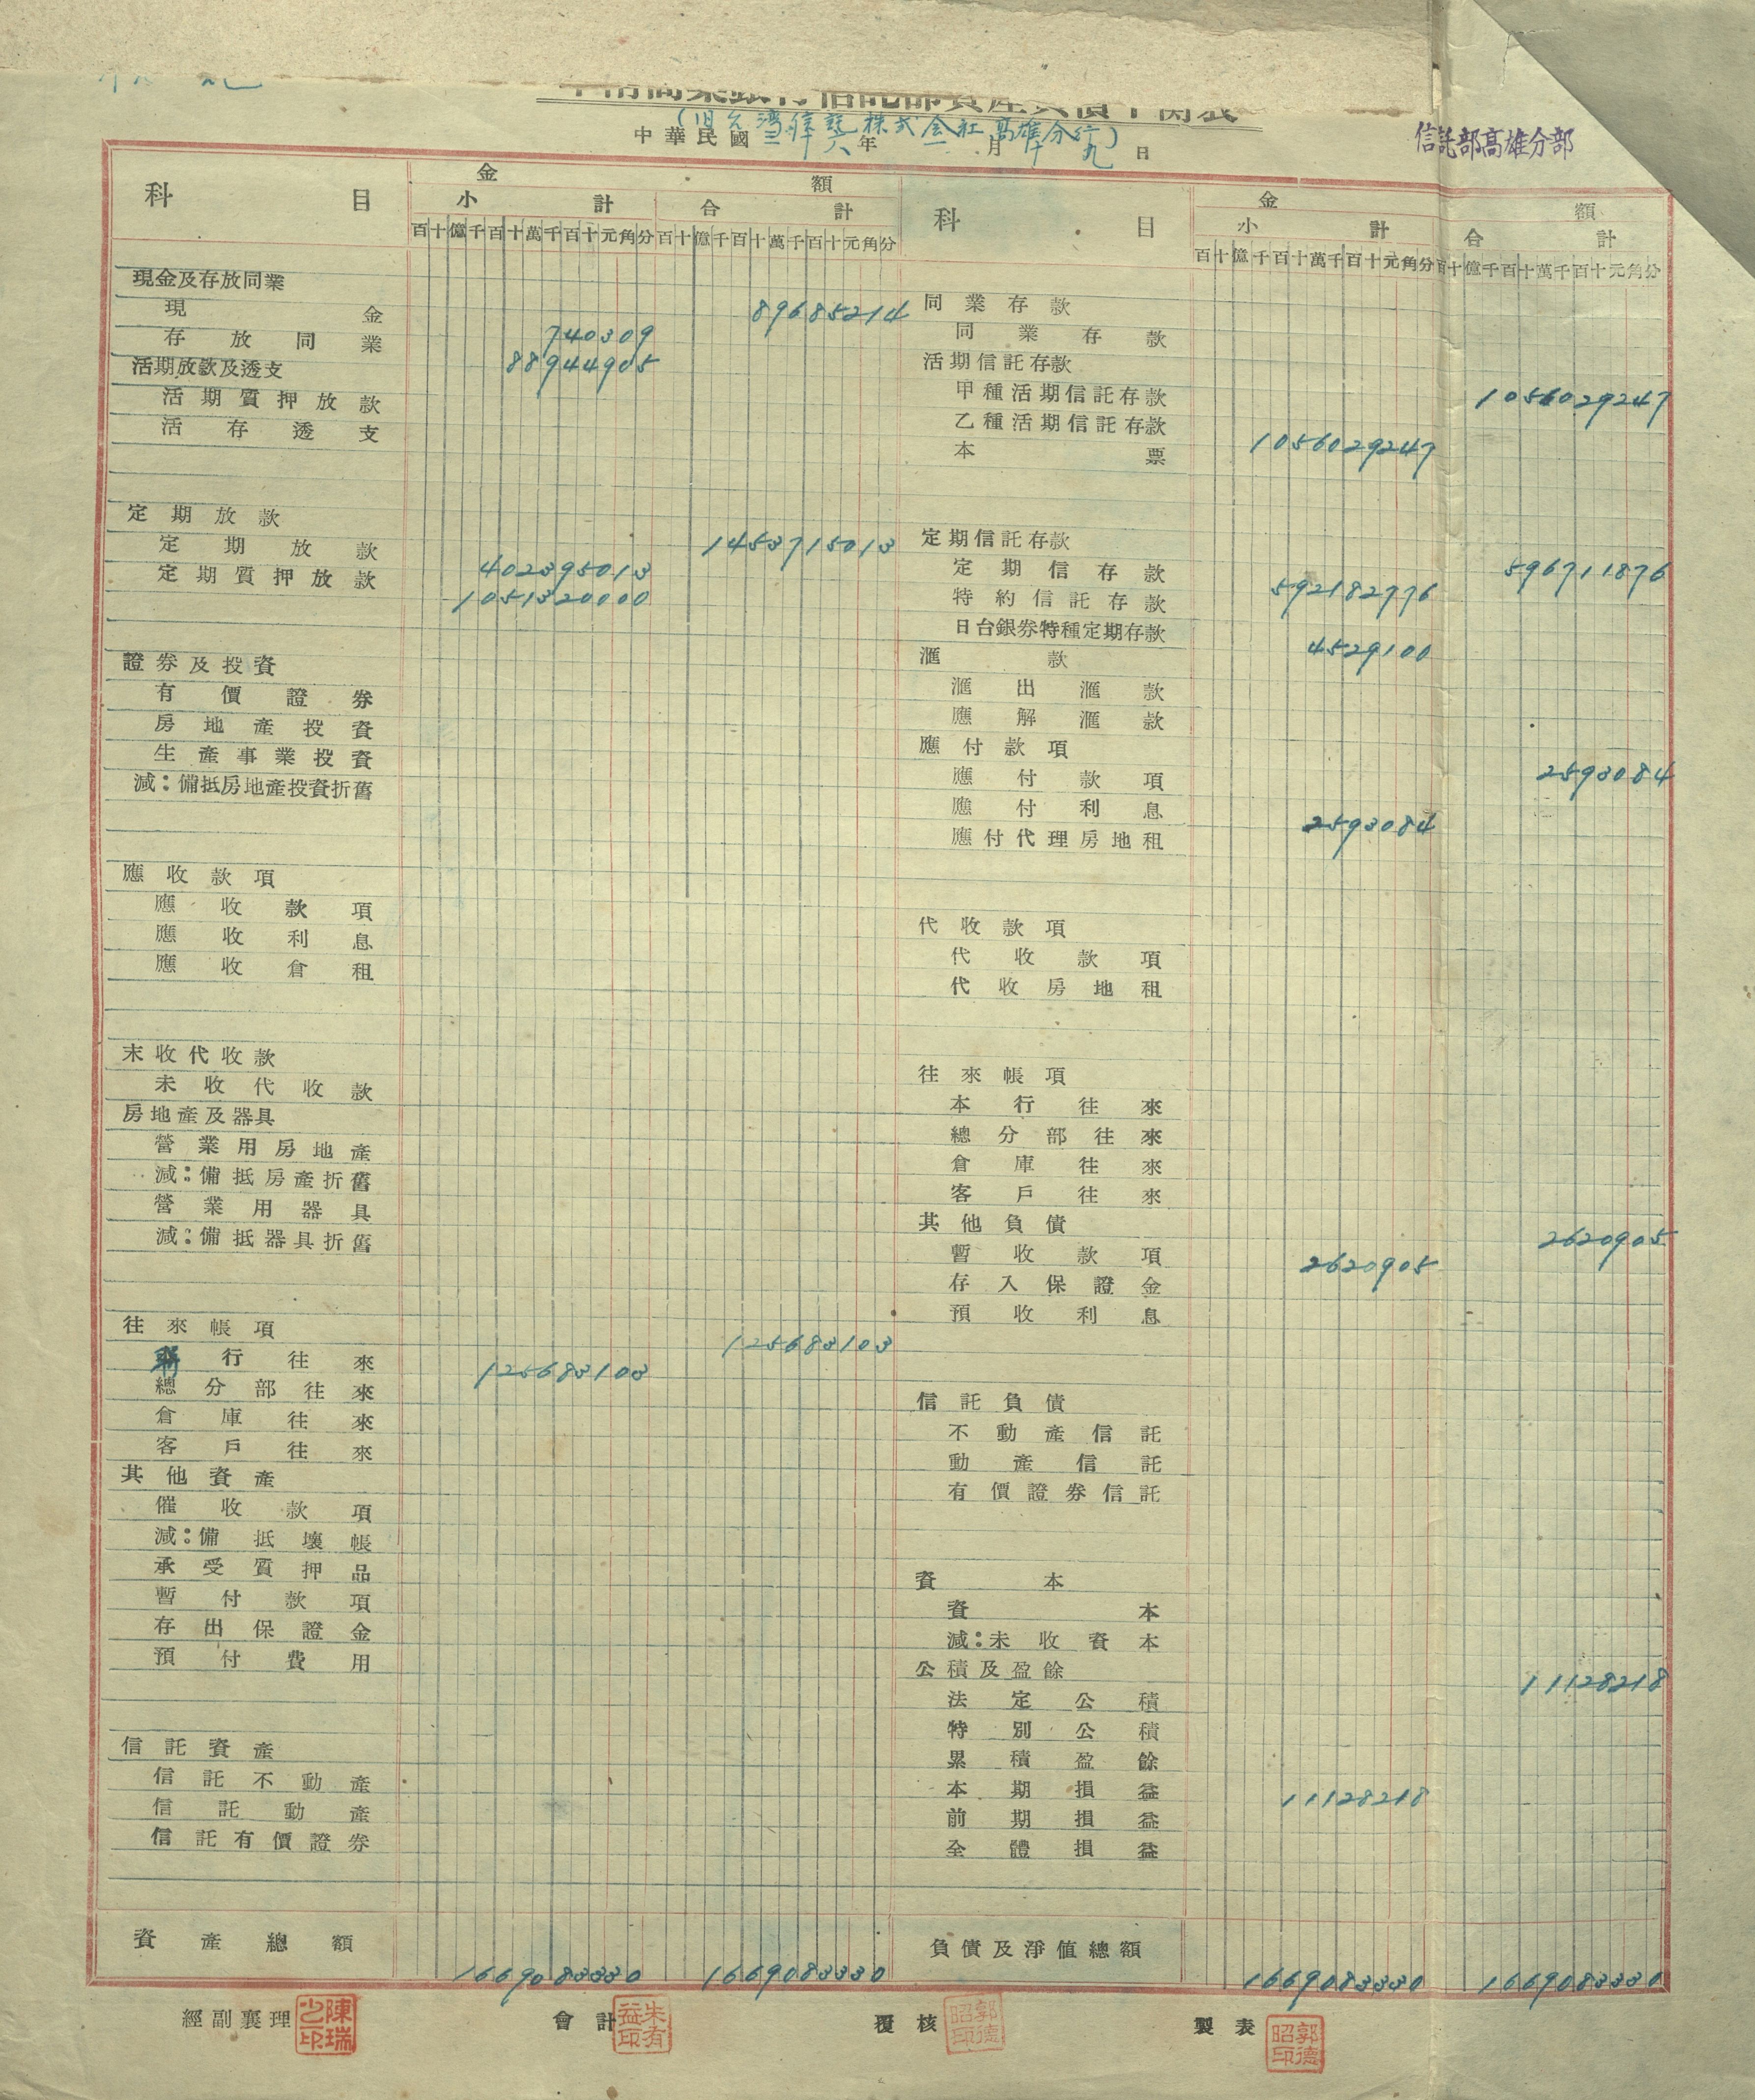 華南商業銀行信託部資產負債平衡表
(旧台灣信託株式会社高雄分行)
中華民國三十八年一月十九日
信託部高雄分部
科目 金額 科目 金額
小計 合計 小計 合計
百十億千百十萬千百十元角分 百十億千百十萬千百十元角分 百十億千百十萬千百十元角分 百十億千百十萬千百十元角分
現金及存放同業 89685214
現金 740309
存放同業 88944905
活期放款及透支
活期質押放款
活存透支
定期放款 1453715013
定期放款 402395013
定期質押放款 1051320000
證券及投資
有價證券
房地產投資
生產事業投資
減:備抵房地產投資折舊
應收款項
應收款項
應收利息
應收倉租
未收代收款
未收代收款
房地產及器具
營業用房地產
減:備抵房產折舊
營業用器具
減:備抵器具折舊
往來帳項 125683103
聯行往來 125683103
總分部往來
倉庫往來
客戶往來
其他資產
催收款項
減:備抵壞帳
承受質押品
暫付款項
存出保證金
預付費用
信託資產
信託不動產
信託動產
信託有價證券
資產總額 1669083330 1669083330
同業存款
同業存款
活期信託存款 1056029247
甲種活期信託存款
乙種活期信託存款 1056029247
本票
定期信託存款 596711876
定期信存款 592182776
特約信託存款
日台銀券特種定期存款 4529100
滙款
滙出滙款
應解滙款
應付款項 2593084
應付款項
應付利息 2593084
應付代理房地租
代收款項
代收款項
代收房地租
往來帳項
本行往來
總分部往來
倉庫往來
客戶往來
其他負債 2620905
暫收款項 2620905
存入保證金
預收利息
信託負債
不動產信託
動產信託
有價證券信託
資本
資本
減:未收資本
公積及盈餘 11128218
法定公積
特別公積
累積盈餘
本期損益 11128218
前期損益
全體損益
負債及淨值總額 1669083330 1669083330
經副襄理 會計 覆核 製表
朱有益印 郭德昭印 郭德昭印